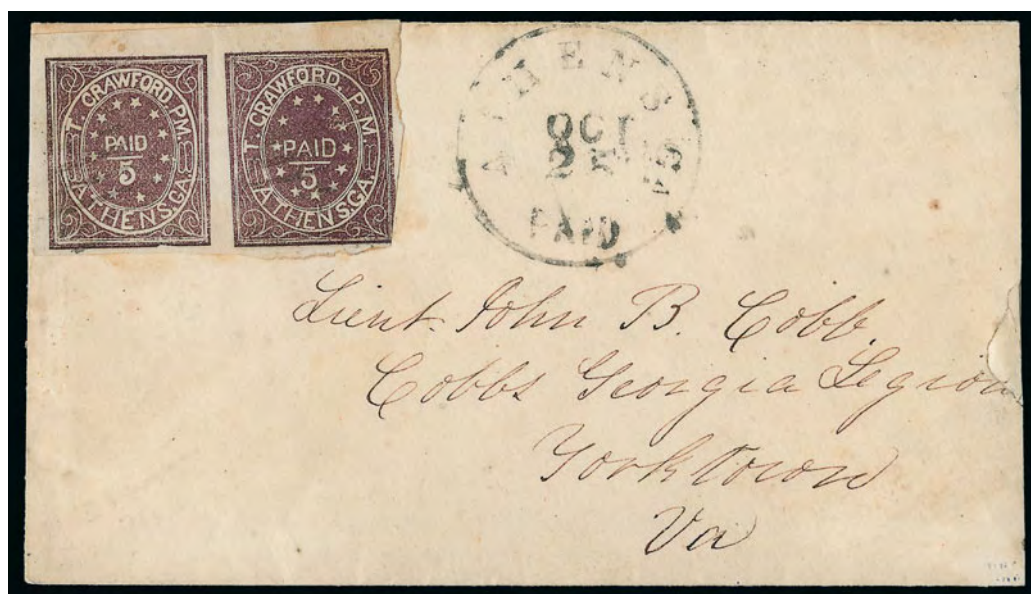 T. CRAWFORD, P.M
PAID
5
ATHENS, GA.
T. CRAWFORD, P.M
PAID
5
ATHENS, GA.
ATHENS GA
OCT
PAID
Lieut. John B. Cobb.
Cobbs Georgia Legion
Yorktown
Va